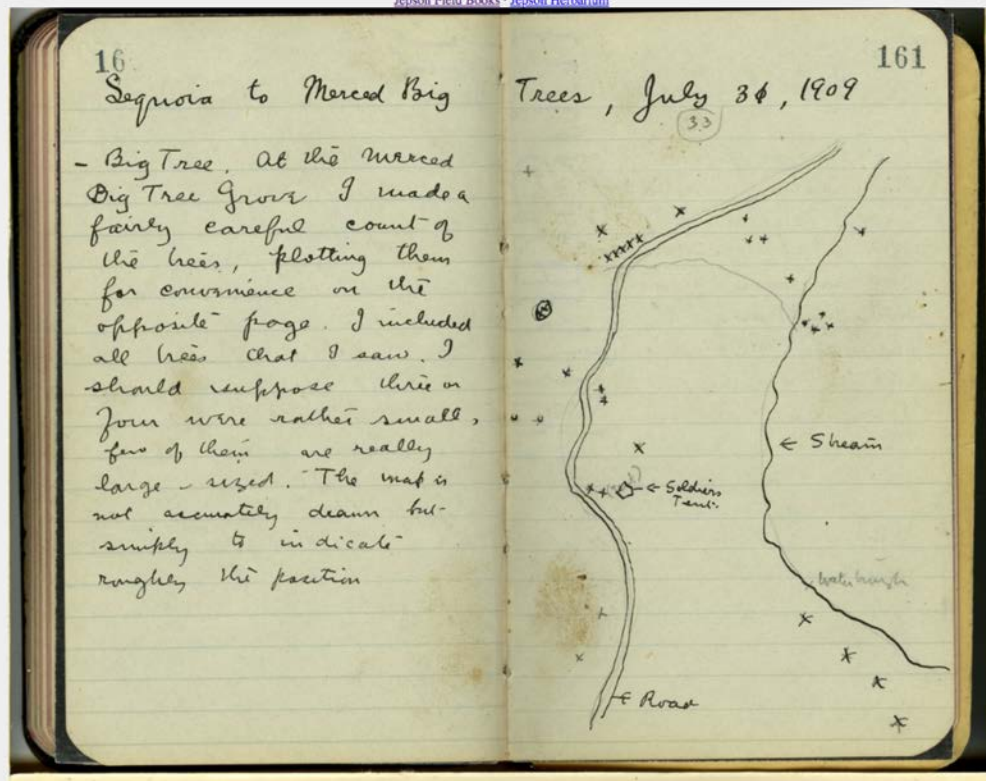 Jepson Field Books · Jepson Herbarium
16
161
Sequoia to Merced Big Trees, July 31, 1909
33
- Big Tree. At the Merced
Big Tree Grove I made a
fairly careful count of
the trees, plotting them
for convenience on the
opposite page. I included
all trees that I saw. I
should suppose three or
four were rather small,
few of them are really
large-sized. The map is
not accurately drawn but
simply to indicate
roughly the position
← Stream
← Soldiers
Tent
← Road